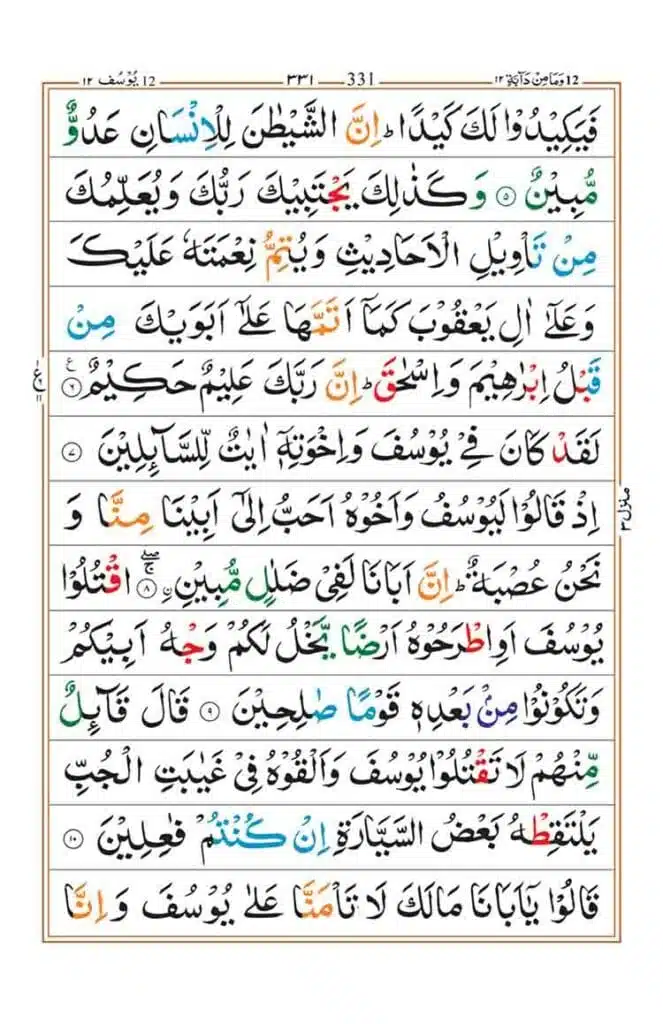 12 وَمَا مِنْ دَآبَّةٍ ١٢ 331 ٣٣١ 12 يُوْسُف ١٢
فَيَكِيْدُوْا لَكَ كَيْدًا ؕ اِنَّ الشَّيْطٰنَ لِلْاِنْسَانِ عَدُوٌّ
مُّبِيْنٌ ۝٥ وَكَذٰلِكَ يَجْتَبِيْكَ رَبُّكَ وَيُعَلِّمُكَ
مِنْ تَاْوِيْلِ الْاَحَادِيْثِ وَيُتِمُّ نِعْمَتَهٗ عَلَيْكَ
وَعَلٰٓى اٰلِ يَعْقُوْبَ كَمَآ اَتَمَّهَا عَلٰٓى اَبَوَيْكَ مِنْ
قَبْلُ اِبْرٰهِيْمَ وَاِسْحٰقَ ؕ اِنَّ رَبَّكَ عَلِيْمٌ حَكِيْمٌ ۝٦ ع
لَقَدْ كَانَ فِيْ يُوْسُفَ وَاِخْوَتِهٖٓ اٰيٰتٌ لِّلسَّآئِلِيْنَ ۝٧
اِذْ قَالُوْا لَيُوْسُفُ وَاَخُوْهُ اَحَبُّ اِلٰٓى اَبِيْنَا مِنَّا وَ
نَحْنُ عُصْبَةٌ ؕ اِنَّ اَبَانَا لَفِيْ ضَلٰلٍ مُّبِيْنِ ۝٨ اۨقْتُلُوْا
يُوْسُفَ اَوِاطْرَحُوْهُ اَرْضًا يَّخْلُ لَكُمْ وَجْهُ اَبِيْكُمْ
وَتَكُوْنُوْا مِنْۢ بَعْدِهٖ قَوْمًا صٰلِحِيْنَ ۝٩ قَالَ قَآئِلٌ
مِّنْهُمْ لَا تَقْتُلُوْا يُوْسُفَ وَاَلْقُوْهُ فِيْ غَيٰبَتِ الْجُبِّ
يَلْتَقِطْهُ بَعْضُ السَّيَّارَةِ اِنْ كُنْتُمْ فٰعِلِيْنَ ۝١٠
قَالُوْا يٰٓاَبَانَا مَالَكَ لَا تَاْمَنَّا عَلٰى يُوْسُفَ وَاِنَّا
منزل ٣